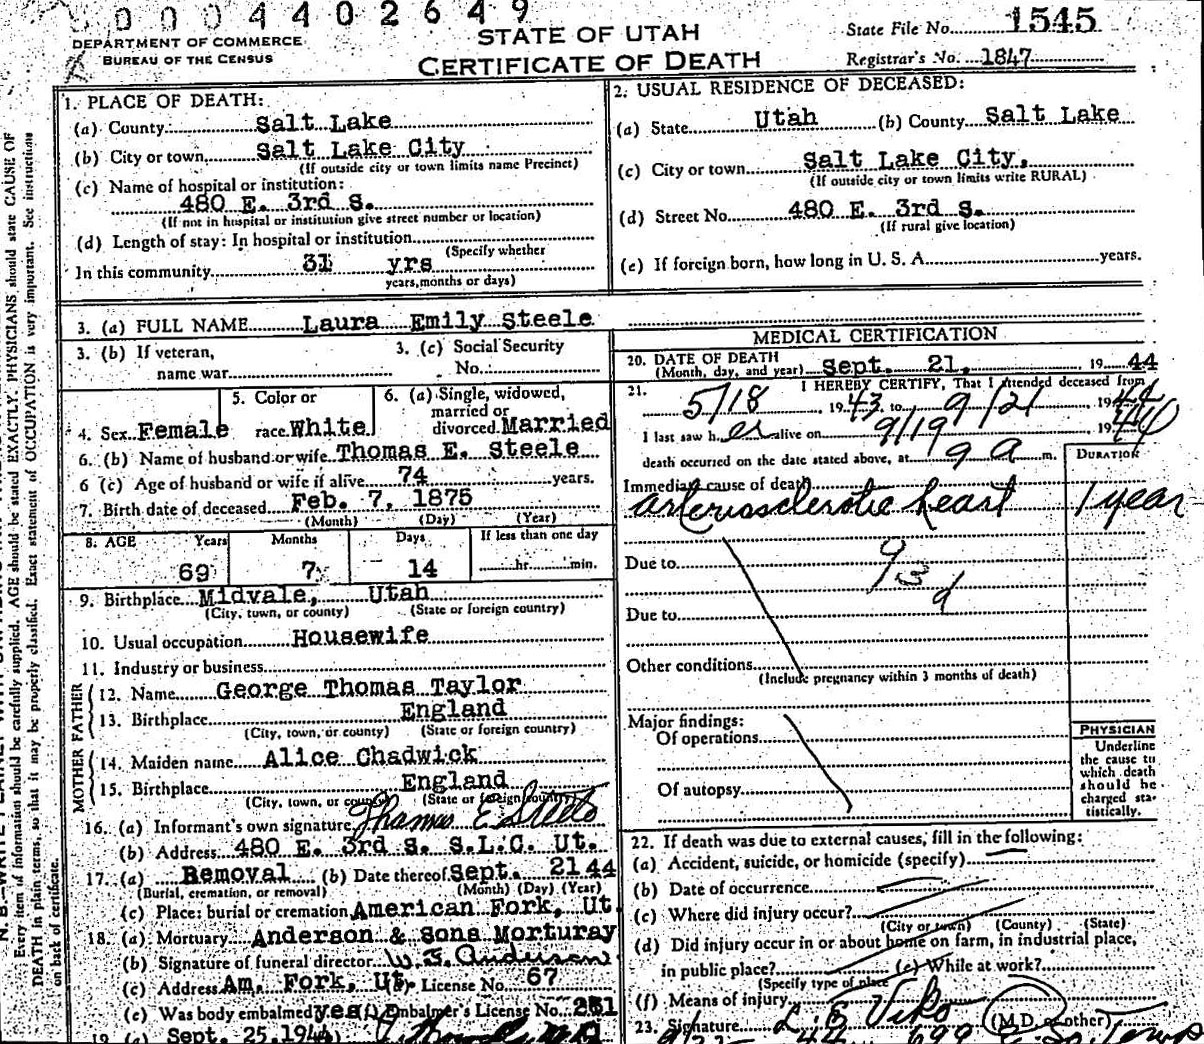 0004402649
DEPARTMENT OF COMMERCE
BUREAU OF THE CENSUS
STATE OF UTAH
CERTIFICATE OF DEATH
State File No. 1545
Registrar's No. 1847
1. PLACE OF DEATH:
(a) County Salt Lake
(b) City or town Salt Lake City
(If outside city or town limits name Precinct)
(c) Name of hospital or institution:
480 E. 3rd S.
(If not in hospital or institution give street number or location)
(d) Length of stay: In hospital or institution
(Specify whether
In this community 31 yrs
years, months or days)
2. USUAL RESIDENCE OF DECEASED:
(a) State Utah (b) County Salt Lake
(c) City or town Salt Lake City,
(If outside city or town limits write RURAL)
(d) Street No. 480 E. 3rd S.
(If rural give location)
(e) If foreign born, how long in U. S. A. years.
3. (a) FULL NAME Laura Emily Steele
3. (b) If veteran,
name war
3. (c) Social Security
No.
4. Sex Female
5. Color or
race White
6. (a) Single, widowed,
married or
divorced Married
6. (b) Name of husband or wife Thomas E. Steele
6 (c) Age of husband or wife if alive 74 years.
7. Birth date of deceased Feb. 7, 1875
(Month) (Day) (Year)
8. AGE Years Months Days If less than one day
69 7 14 hr. min.
9. Birthplace Midvale, Utah
(City, town, or county) (State or foreign country)
10. Usual occupation Housewife
11. Industry or business
FATHER
12. Name George Thomas Taylor
13. Birthplace England
(City, town, or county) (State or foreign country)
MOTHER
14. Maiden name Alice Chadwick
15. Birthplace England
(City, town, or county) (State or foreign country)
16. (a) Informant's own signature Thomas E Steele
(b) Address 480 E. 3rd S. S.L.C. Ut.
17. (a) Removal (b) Date thereof Sept. 21 44
(Burial, cremation, or removal) (Month) (Day) (Year)
(c) Place: burial or cremation American Fork, Ut.
18. (a) Mortuary Anderson & Sons Morturay
(b) Signature of funeral director W. S. Anderson
(c) Address Am. Fork, Ut. License No. 67
(e) Was body embalmed yes Embalmer's License No. 251
19. (a) Sept. 25, 1944
MEDICAL CERTIFICATION
20. DATE OF DEATH
(Month, day, and year) Sept. 21, 19 44
21. I HEREBY CERTIFY, That I attended deceased from
5/18 1943 to 9/21 1944
I last saw her alive on 9/19 1944
death occurred on the date stated above, at 9 a m.
DURATION
Immediate cause of death
arteriosclerotic heart 1 year
93d
Due to
Due to
Other conditions
(Include pregnancy within 3 months of death)
Major findings:
Of operations
Of autopsy
PHYSICIAN
Underline
the cause to
which death
should be
charged sta-
tistically.
22. If death was due to external causes, fill in the following:
(a) Accident, suicide, or homicide (specify)
(b) Date of occurrence
(c) Where did injury occur?
(City or town) (County) (State)
(d) Did injury occur in or about home on farm, in industrial place,
in public place? (e) While at work?
(Specify type of place
(f) Means of injury
23. Signature L. E Viko (M.D. or other)
Every item of information should be carefully supplied. AGE should be stated EXACTLY. PHYSICIANS should state CAUSE OF
DEATH in plain terms, so that it may be properly classified. Exact statement of OCCUPATION is very important. See instruction
on back of certificate.